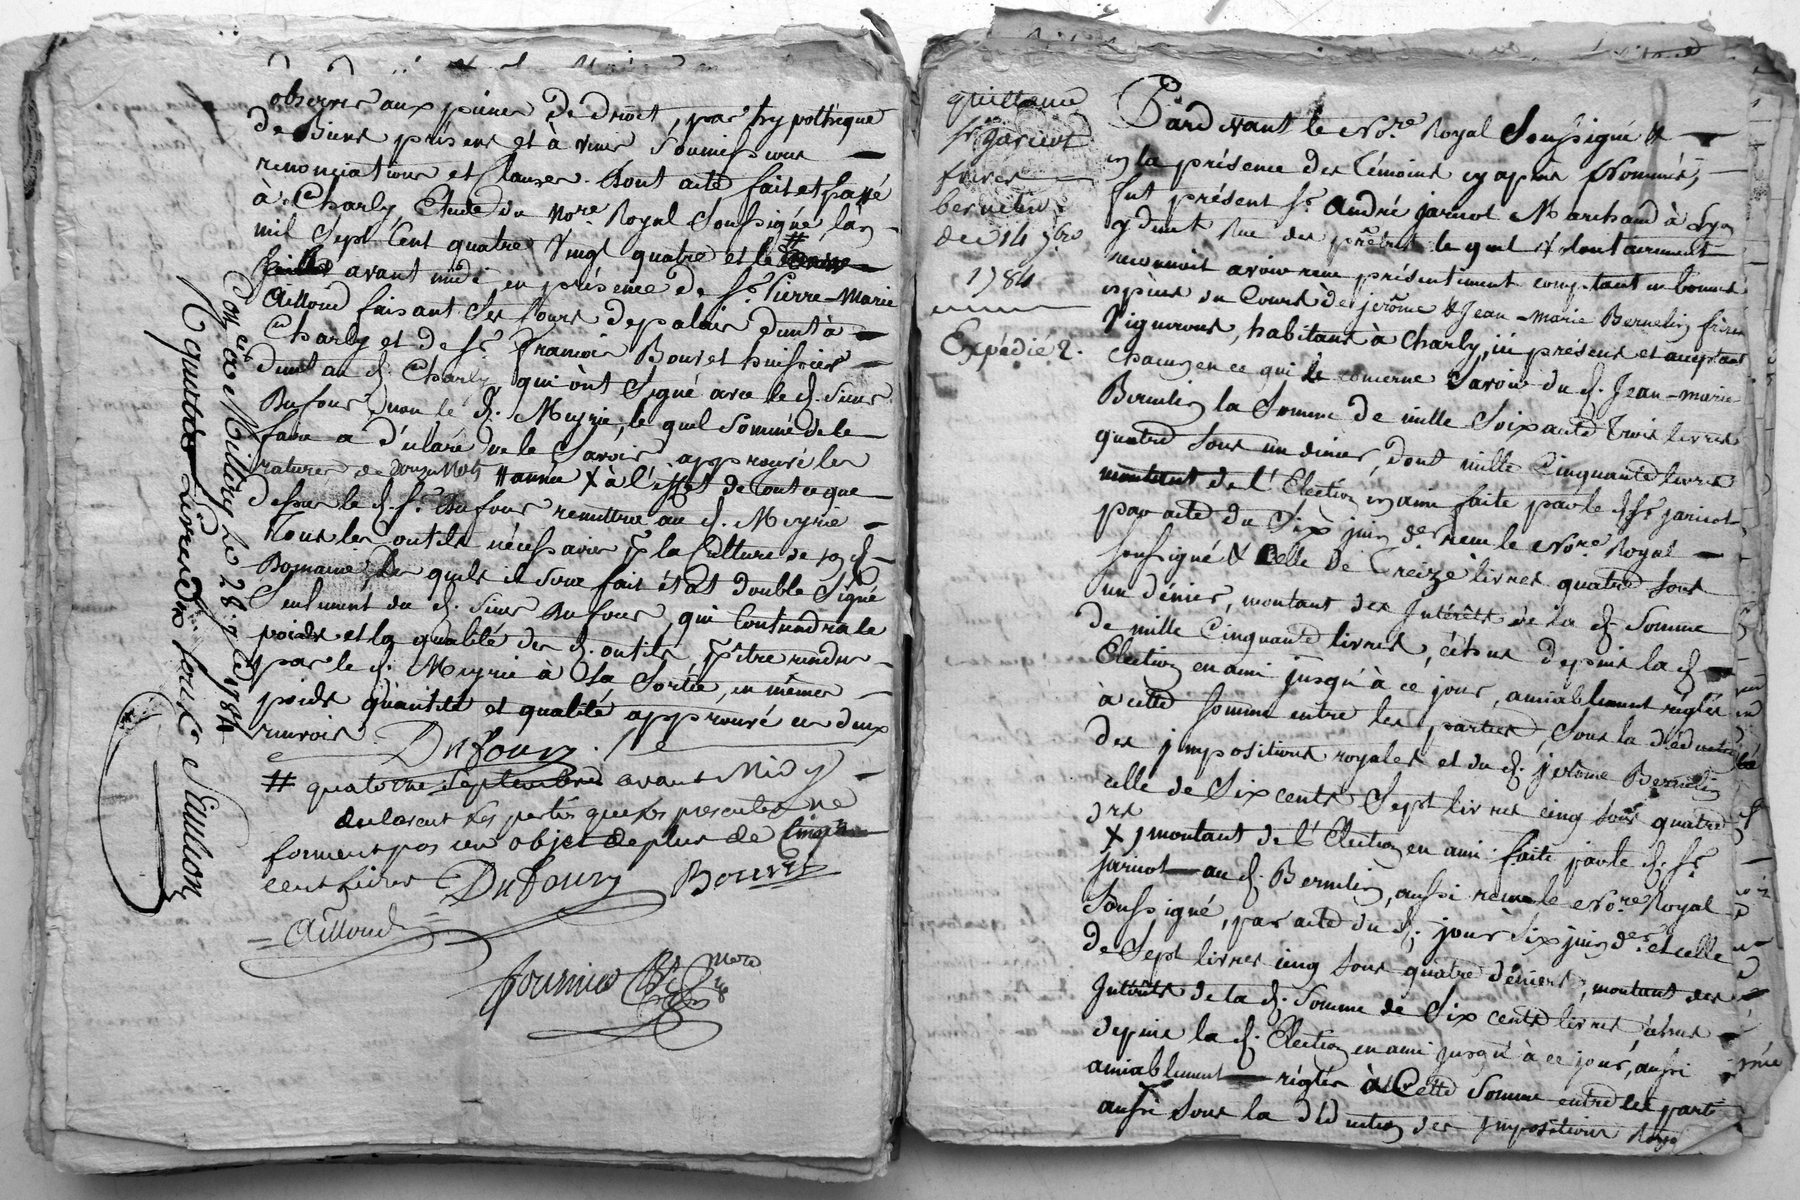 observer aux peines de droit, par hypothéque
de biens présens et à venir soumissions
renonciations et clauses. Dont acte fait et passé
à Charly Etude du No.re Royal Soussigné, l'an
mil Sept Cent quatre Vingt quatre et le
avant midi, en présence de Sr. Pierre-Marie
Ailloud faisant Ses Cours de palais dmt à
Charly et de Sr. François Bouvet huissier
dmt au d. Charly, qui ont Signé avec le d. Sieur
Dufour, non le d. Meyrié, le quel Sommé de le
faire a déclaré ne le Savoir approuvé les
ratures de douze mots # année X à l'effet de tout ce que
dessus le d. Sr. Dufour remettra au d. Meyrié
tous les outils nécessaires pr. la Culture de son d.
Domaine, des quels il Sera fait état double Signé
Seulement du d. Sieur Dufour, qui Contiendra le
poids et la qualité des d. outils, pr. être rendus
par le d. Meyrié à Sa Sortie, en mêmes
poids quantité et qualité approuvé ces deux
renvois. Dufour
# quatorze Septembre avant Midy
declarent les parties que les presentes ne
forment pas un objet de plus de Cinq
cent livres Dufour Bouvet
Ailloud
Fournier
Con.lé à Millery le 28. 7bre 1784
Reçu
quillance
Sr. jaricot
frères
bernelin
du 14 7bre
1784
Expédié 2.
Pardevant le No.re Royal Soussigné &
en la présence des Témoins cy après Nommés,
fut présent Sr. André jaricot Marchand à Lyon
y dmt Rue des prêtres le quel Volontairement
reconnoit avoir reçu présentement comptant en bonnes
espèces du Cours de jerôme & Jean-marie Bernelin frères
Vignerons, habitans à Charly, ici présens et acceptant
chacun en ce qui le concerne Savoir du d. Jean-marie
Bernelin la Somme de mille Soixante trois livres
quatre Sous un denier, dont mille Cinquante livres
montant de l'Election en ami faite par le d. Sr. jaricot
par acte du Six juin der. reçu le No.re Royal
Soussigné & Celle de Treize livres quatre Sous
un dénier, montant des Intérêts de la d. Somme
de mille Cinquante livres, échus depuis la d.
Election en ami jusqu'à ce jour, amiablement réglés
à cette Somme entre les parties, Sous la déduction
des jmpositions royales et du d. jerôme Bernelin
celle de Six cents Sept livres cinq Sous quatre
drs
X montant de l'Election en ami faite par le d. Sr.
jaricot au d. Bernelin, aussi reçue le No.re Royal
Soussigné, par acte du d. jour Six juin der. et celle
de Sept livres cinq Sous quatre déniers, montant des
Intérêts de la d. Somme de Six cents livres échus
depuis la d. Election en ami jusqu'à ce jour, aussi
amiablement réglés à Cette Somme entre les parti
aussi Sous la déduction des jmpositions Roya